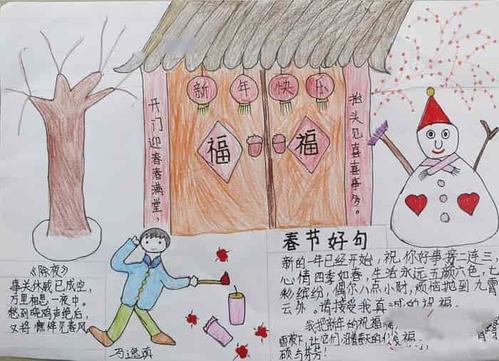 新年快乐
开门迎春春满堂,
抬头见喜喜事多。
福
福
《除夜》
事关休戚已成空,
万里相思一夜中。
愁到晓鸡声绝后,
又将憔悴见春风
春节好句
新的一年已经开始,祝你好事接二连三,
心情四季如春,生活永远五颜六色,七
彩缤纷,偶尔八点小财,烦恼抛到九霄
云外。请接受我真诚的祝福。
我把新年的祝福
让它们